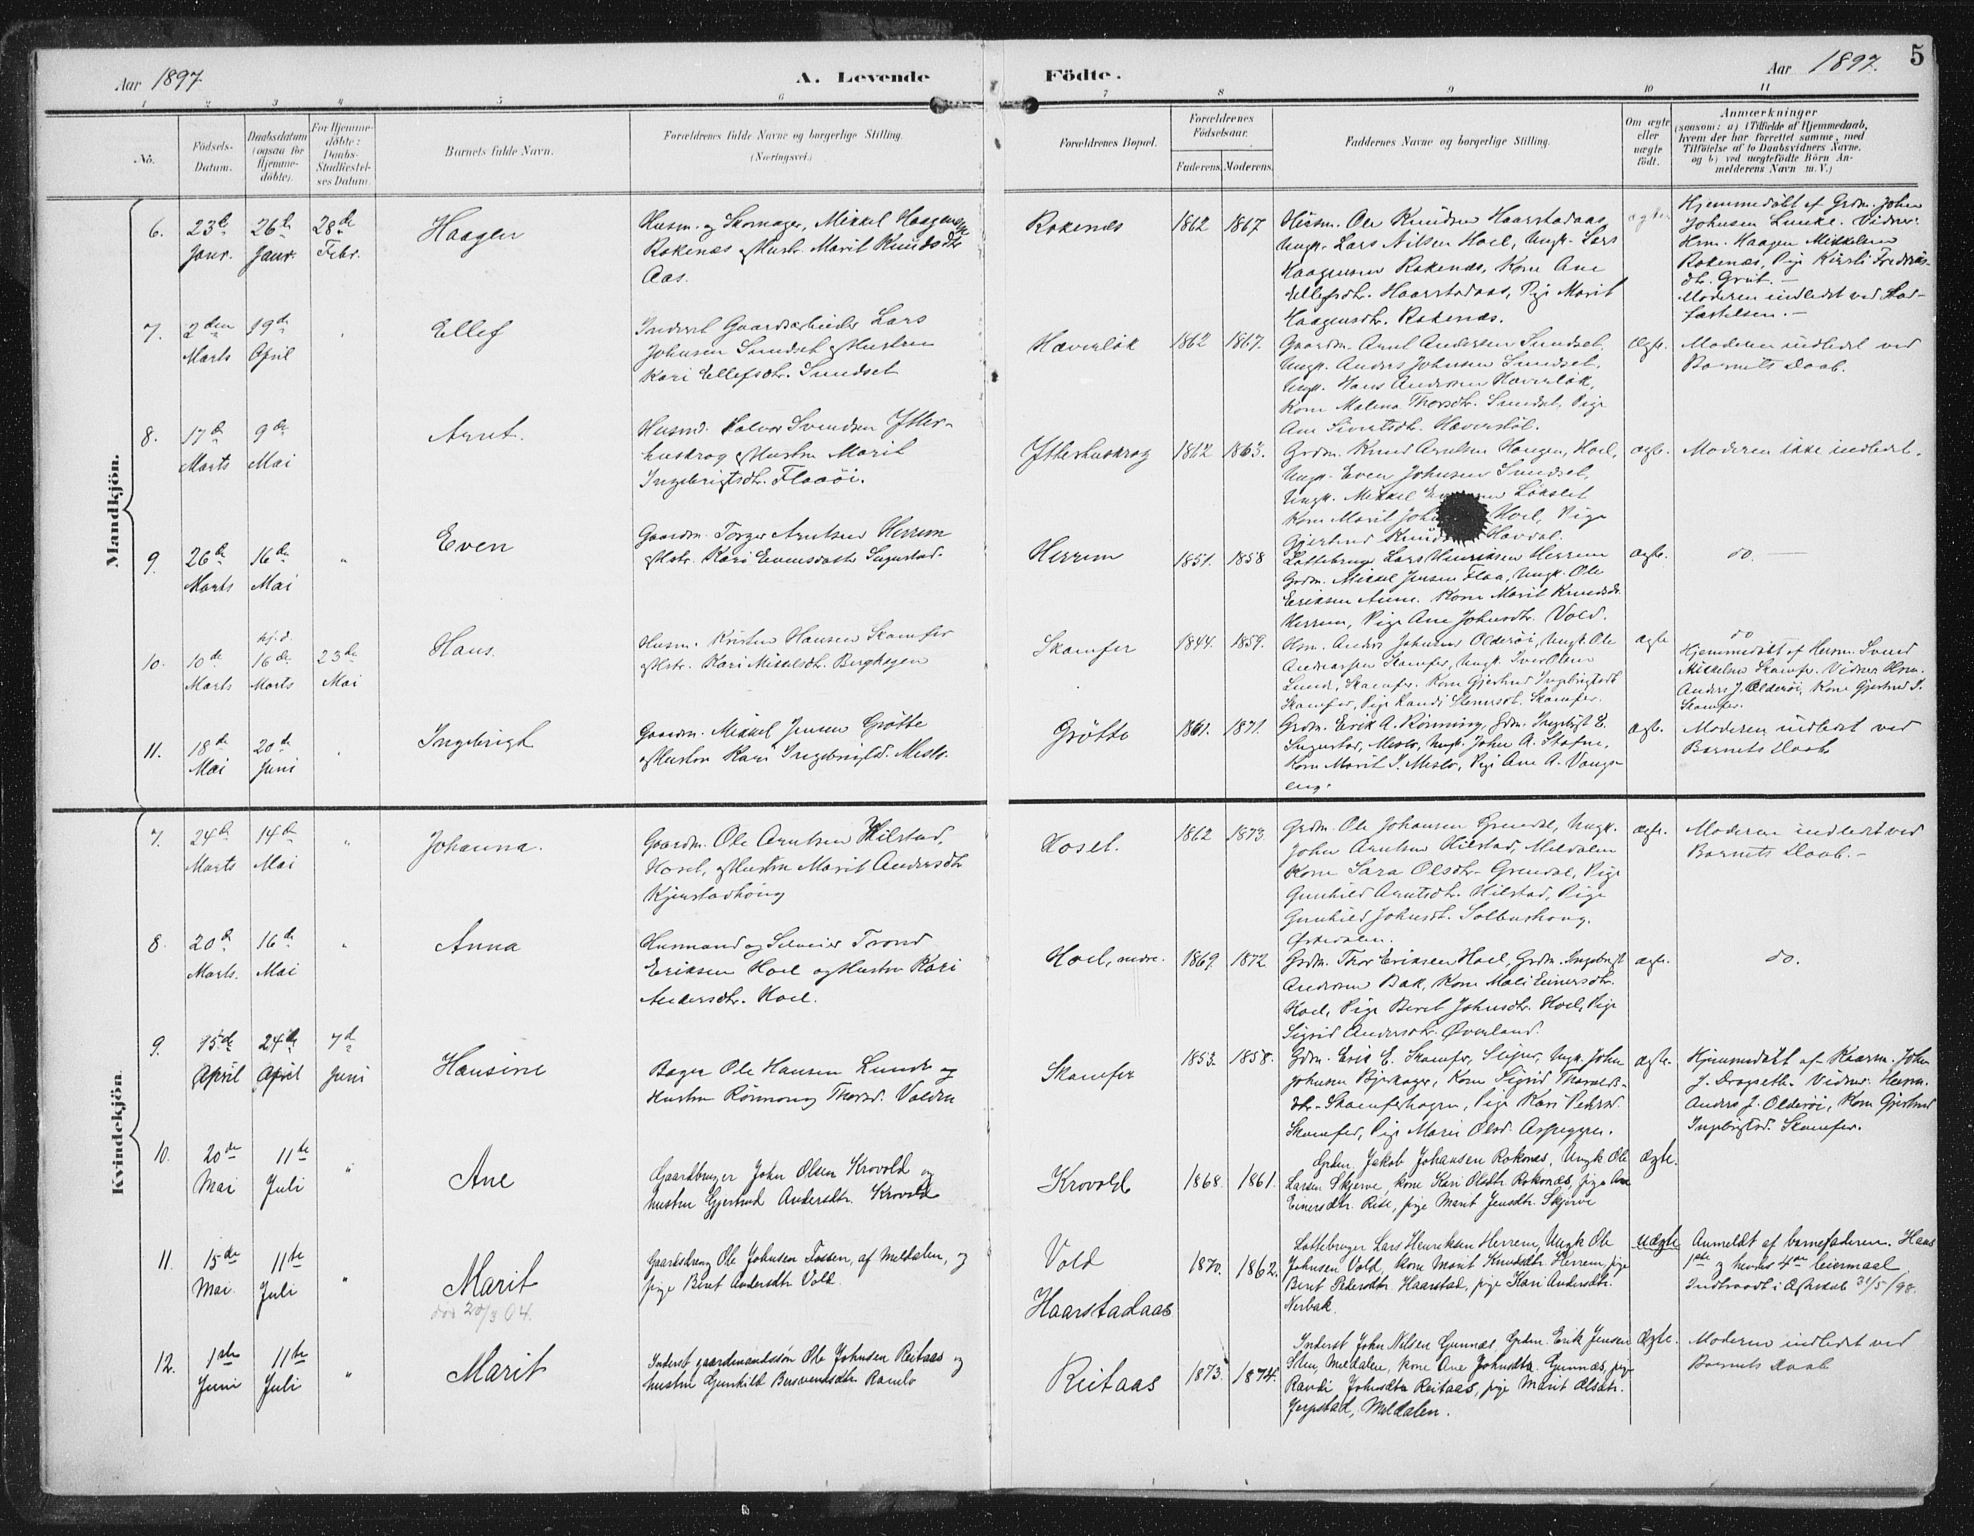 Aar 1897. A. Levende Födte. Aar 1897. 5
1 2 3 4 5 6 7 8 9 10 11
No.
Födsels-
Datum.
Daabsdatum
(ogsaa for
Hjemme-
döbte).
For Hjemme-
döbte:
Daabs-
Stadfæstel-
ses Datum.
Barnets fulde Navn.
Forældrenes fulde Navne og borgerlige Stilling.
(Næringsvei.)
Forældrenes Bopæl.
Forældrenes
Födselsaar.
Faderens. Moderens.
Faddernes Navne og borgerlige Stilling.
Om ægte
eller
uægte
födt.
Anmærkninger
(saasom: a) i Tilfælde af Hjemmedaab,
hvem der har forrettet samme, med
Tilföielse af to Daabsvidners Navne,
og b) ved uægtefödte Börn An-
melderens Navn m. V.)
Mandkjön.
6. 23de Janr. 26de Janr. 28de Febr.
Haagen
Husm. og Skomager, Mikkel Haagensen
Rokenæs og Hustr. Marit Knudsdtr.
Aas.
Rokenæs 1862 1867
Husm. Ole Knudsen Haarstadaas,
Ungk. Lars Nilsen Hoel, Ungk. Lars
Haagensen Rokenæs, Kone Ane
Ellefsdtr. Haarstadaas, Pige Marit
Haagensdtr. Rokenæs.
ægte
Hjemmedöbt af Grdm. John
Johnsen Lunke. Vidner:
Hm. Haagen Mikkelsen
Rokenæs, Pige Kirsti Fredriks-
dtr. Grut. —
Moderen indledet ved Stad-
fæstelsen. —
7. 2den Marts 19de April
Ellef
Inderst Gaardsarbeider Lars
Johnsen Sundset og Hustru
Kari Ellefsdtr. Sundset
Hæverlök 1862 1867.
Gaardm. Arnt Andersen Sundset,
Ungk. Anders Johnsen Sundset,
Ungk. Hans Andersen Hæverlök,
Kone Malena Thorsdtr. Sundset, Pige
Ane Sivertsdtr. Hæverlök.
ægte.
Moderen indledet ved
Barnets Daab.
8. 17de Marts 9de Mai
Arnt.
Husmd. Halvor Svendsen Ytter-
huskrog og Hustru Marit
Ingebrigtsdtr. Flaaöi.
Ytterhuskrog 1862 1863.
Grdm. Knud Arntsen Haugen, Hoel,
Ungk. Even Johnsen Sundset,
Ungk. Mikkel Lökslet
Kone Marit Hoel, Pige
Gjertrud Havdal.
ægte.
Moderen ikke indledet.
9. 26de Marts 16de Mai "
Even
Gaardm. Torger Arntsen Herrem
og Hstr. Kari Evensdatter Sugustad.
Herrem 1851. 1858
Lottebruger Lars Henriksen Herrem
Grdm. Mikkel Jensen Flaa, Ungk. Ole
Eriksen Aune. Kone Marit Knudsdtr.
Herrem, Pige Ane Johnsdtr. Vold.
ægte.
do. —
10. 10de Marts hj.d. 16de Marts 23de Mai
Hans.
Husm. Kristen Hansen Skamfer
og Hstr. Kari Mikkelsdtr. Berghagen
Skamfer 1844. 1859.
Hm. Anders Johnsen Olderöi, Ungk. Ole
Andreassen Skamfer, Ungk. Iver Olsen
Lund, Skamfer. Kone Gjertrud Ingebrigtsdt
Skamfer, Pige Randi Skamfer.
ægte
do
Hjemmedöbt af Husm. Svend
Mikkelsen Skamfer. Vidner Hsm.
Anders J. Olderöi, Kone Gjertrud I.
Skamfer.
11. 18de Mai 20de Juni
Ingebrigt
Gaardm. Mikkel Jensen Grötte
og Hustru Kari Ingebrigtsd. Meslo.
Grötte 1861. 1871.
Grdm. Erik A. Rönning, Gdm. Ingebrigt E.
Sugustad, Meslo, Ungk. John A. Stafne,
Kone Marit I. Meslo, Pige Ane A. Vangs-
eng.
ægte.
Moderen indledet ved
Barnets Daab
Kvindekjön.
7. 24de Marts 14de Mai "
Johanna.
Gaardm. Ole Arntsen Hilstad,
Hosel, og Hustru Marit Andersdtr
Kjenstadhöug
Hosel. 1862 1873.
Grdm. Ole Johansen Grendal, Ungk.
John Arntsen Hilstad, Meldalen
Kone Sara Olsdtr. Grendal, Pige
Gunhild Arntsdtr. Hilstad, Pige
Gunhild Johnsdtr. Solbushaug.
Orkedalen.
ægte.
Moderen indledet ved
Barnets Daab. —
8. 20de Marts. 16de Mai "
Anna
Husmand og Selveier Trond
Eriksen Hoel og Hustru Kari
Andersdtr. Hoel.
Hoel, andre. 1869. 1872
Grdm. Thor Eriksen Hoel, Grdm. Ingebrigt
Andersen Bak, Kone Mali Einersdtr.
Hoel, Pige Beret Johnsdtr. Hoel, Pige
Sigrid Andersdtr. Øverland.
ægte.
do.
9. 15de April 24de April 7de Juni
Hansine
Bager Ole Hansen Lund og
Hustru Rönnoug Thorsd. Volden
Skamfer 1853. 1858.
Gdm. Erik E. Skamfer, Ungk. John
Johnsen Bjerkager, Kone Sigrid Thoralds-
dtr. Skamferhagen, Pige Kari Pedersd.
Skamfer, Pige Marie Olsd. Aspeggen.
ægte.
Hjemmedöbt af Kaarm. John
J. Dragseth. Vidner: Husm.
Anders J. Olderöi, Kone Gjertrud
Ingebrigtsd. Skamfer.
10. 20de Mai 11te Juli "
Ane
Gaardbruger John Olsen Krovold og
hustru Gjertrud Andersdtr. Krovold
Krovold 1868. 1861.
Grdm. Jakob Johansen Rokenæs, Ungk Ole
Larsen Skjerve, kone Kari Olsdtr Rokenæs, pige Ane
Einersdtr. Rise, pige Marit Jensdtr. Skjerve
Ægte.
11. 15de Mai. 11te Juli "
Marit
död 20/3 04.
Gaardsdreng Ole Johnsen Fossen, af Meldalen, og
pige Beret Andersdtr Vold.
Vold
Haarstadaas
1870. 1862.
Lottebruger Lars Henriksen Herrem, Ungk Ole
Johnsen Vold, kone Marit Knudsdtr Herrem, pige
Beret Pedersdtr. Haarstad, pige Kari Andersdtr.
Nerbak.
Uægte
Anmeldt af barnefaderen. Hans
1ste og hendes 4de leiermaal
31/5/98.
12. 1ste Juni 11te Juli "
Marit
Inderst gaardmandssön Ole Johnsen Reitaas og
hustru Gunhild Bersvendsdtr Ramlo
Reitaas 1873. 1874.
Inderst John Nilsen Gunnæs, Grdm. Erik Jensen
Sten, Meldalen, kone Ane Johnsdtr Gunnæs, pige
Randi Johnsdtr Reitaas, pige Marit Olsdtr.
Jerpstad, Meldalen.
Ægte.
Moderen indledet ved
Barnets Daab